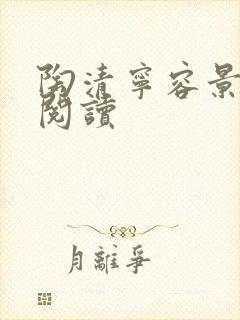 陶清寧容景
閱讀
月離爭